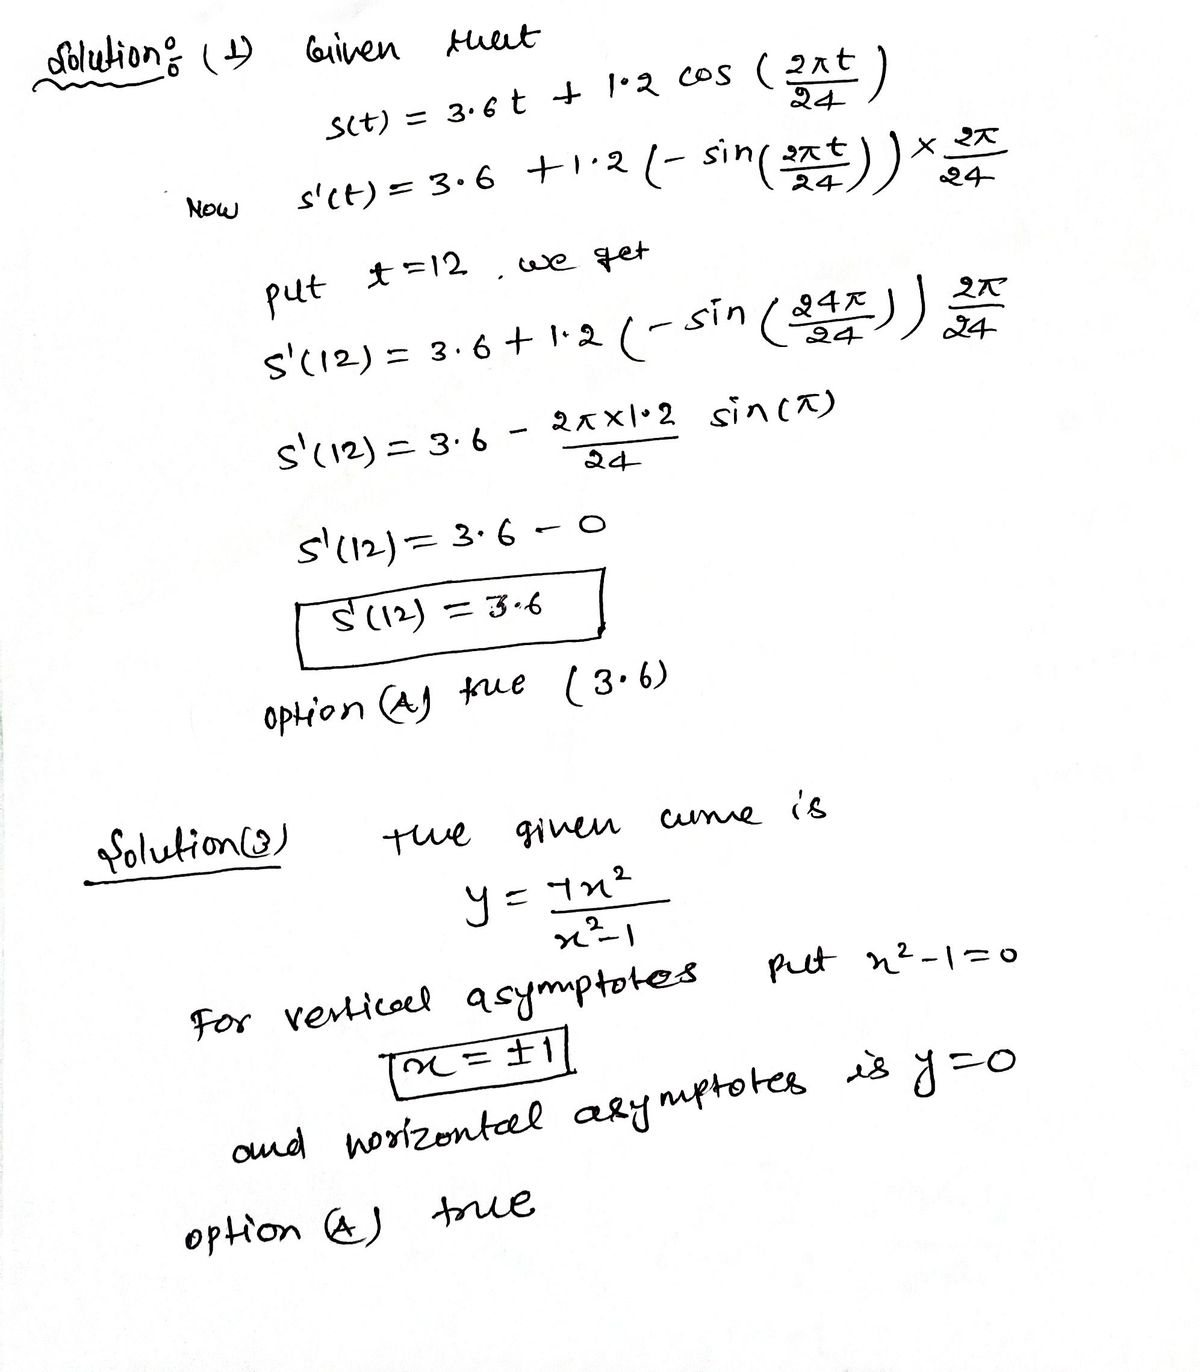 Solution: (1) Given that
s(t) = 3.6t + 1.2 cos (2πt/24)
Now s'(t) = 3.6 + 1.2 (- sin(2πt/24)) × 2π/24
put t=12, we get
s'(12) = 3.6 + 1.2 (- sin (24π/24)) 2π/24
s'(12) = 3.6 - 2π×1.2/24 sin(π)
s'(12) = 3.6 - 0
s'(12) = 3.6
option (A) true (3.6)
Solution(3) the given curve is
y = 7x²/x²-1
For vertical asymptotes put x²-1=0
x = ±1
and horizontal asymptotes is y=0
option (A) true